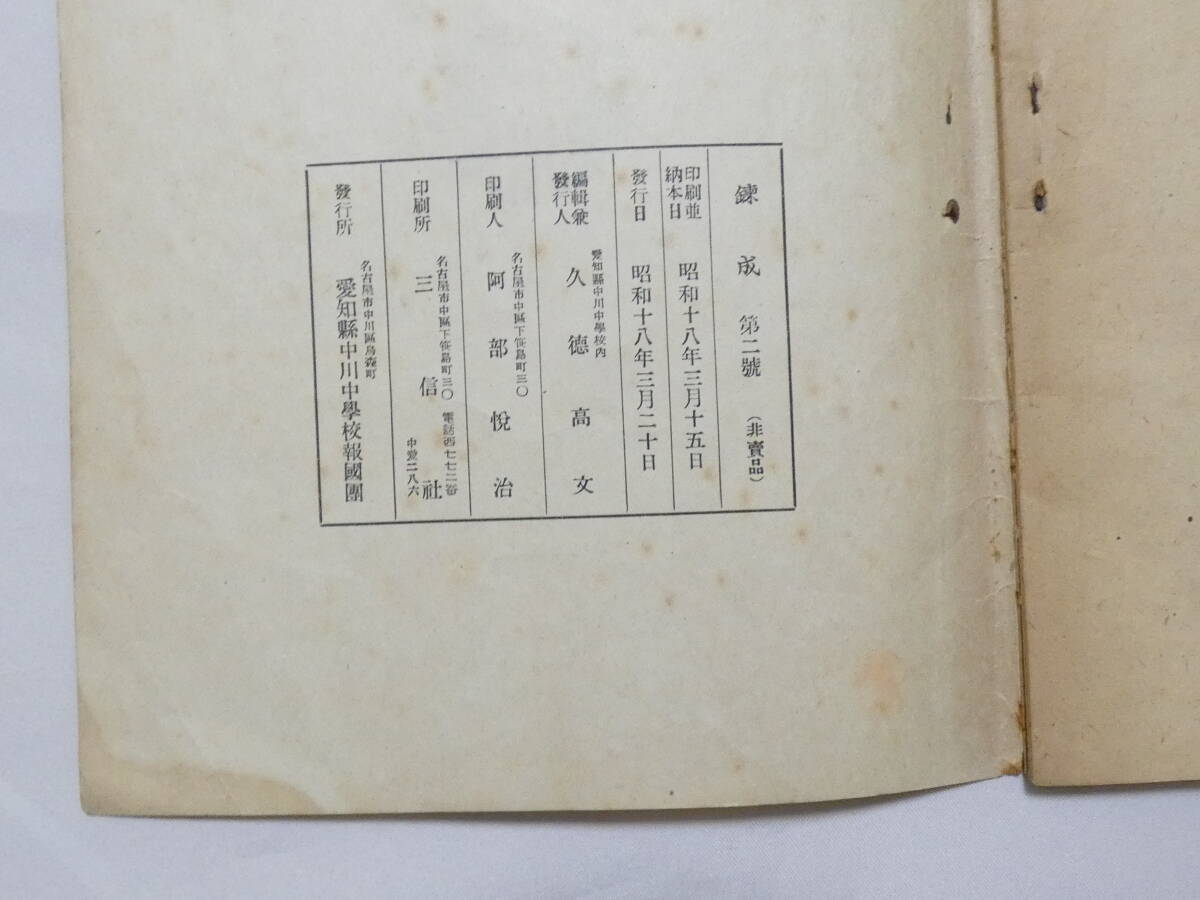 鍊成 第二號 (非賣品)
印刷並
納本日
昭和十八年三月十五日
發行日 昭和十八年三月二十日
編輯兼
發行人
愛知縣中川中學校內
久德高文
印刷人
名古屋市中區下笹島町三〇
阿部悅治
印刷所
名古屋市中區下笹島町三〇 電話西七七二番
三信社
中愛二八六
發行所
名古屋市中川區烏森町
愛知縣中川中學校報國團